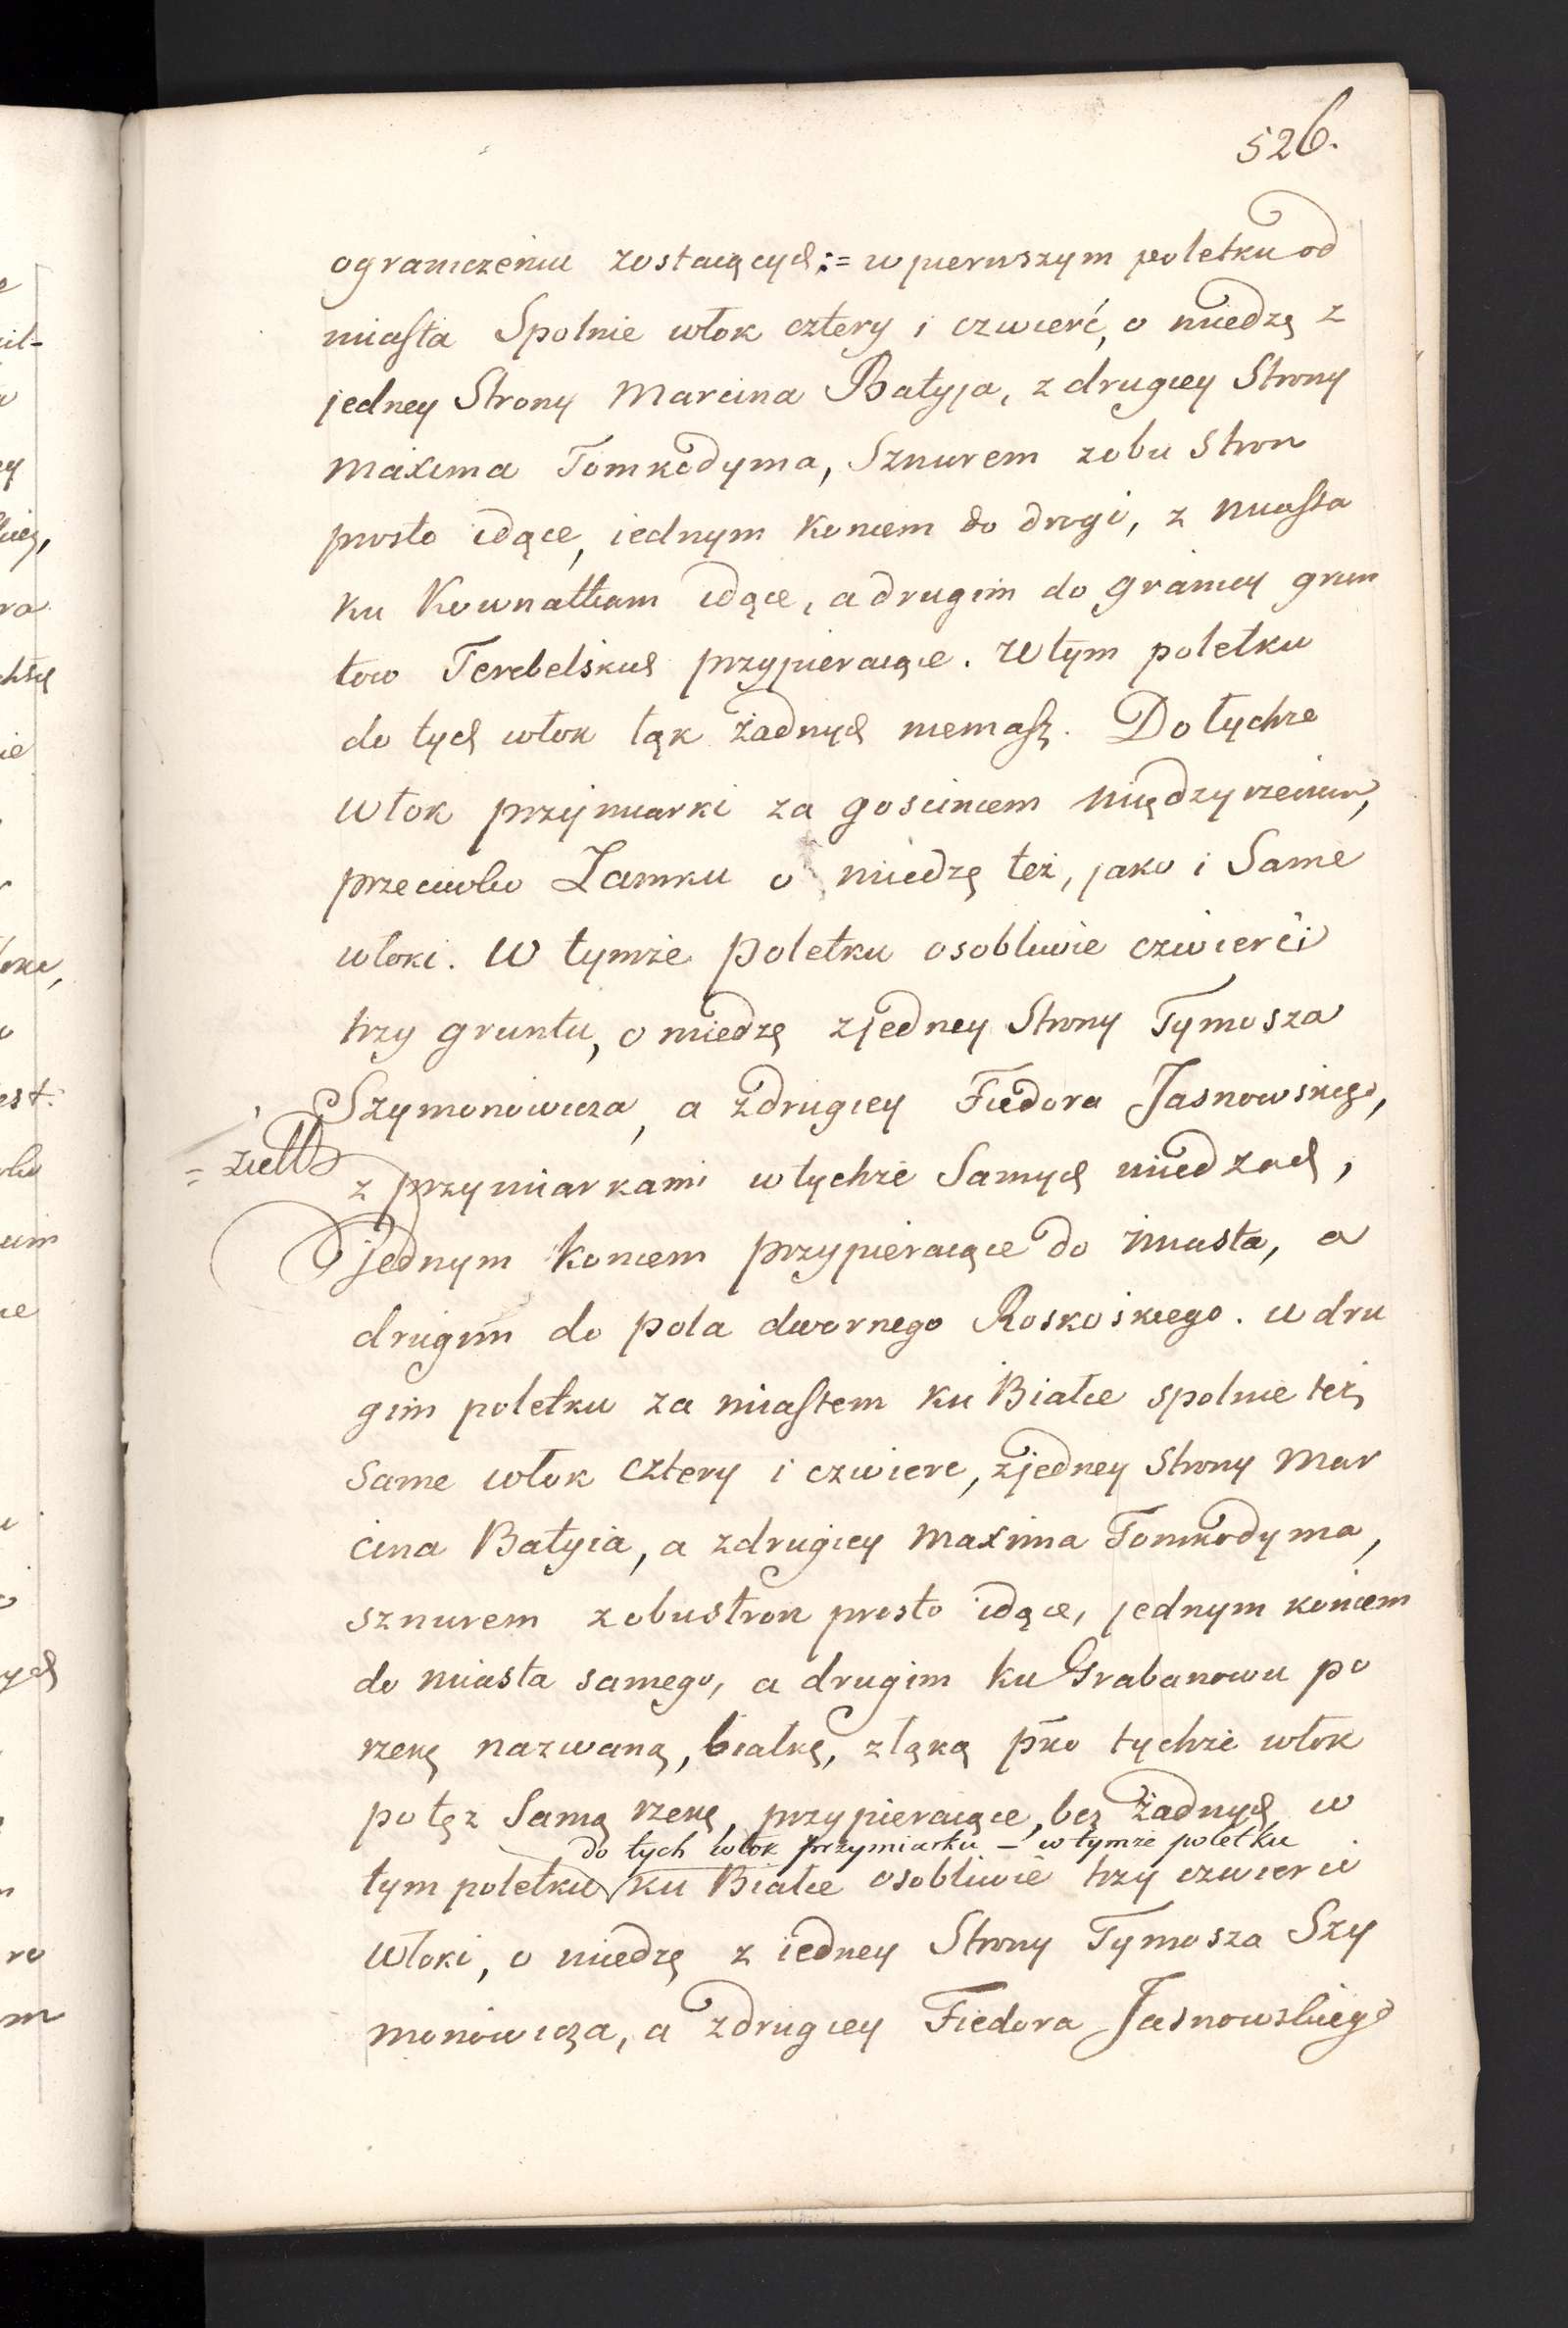 526.
ograniczeniu zostaiących := w pierwszym poletku od
miasta Spolnie włok cztery i czwierć, o miedzę z
jedney Strony Marcina Batyja, z drugiey Strony
Maxima Tomkodyma, Sznurem zobu Stron
prosto idące, iednym Koncem do drogi, z miasta
ku Kownatkam idące, a drugim do granicy grun
tow Terebelskich przypieraiące. W tym poletku
do tych włok łąk żadnych niemasz. Do tychże
Włok przymiarki za goscincem międzyrzeckim,
przeciwko Zamku o miedzę też, jako i Same
włoki. W tymże poletku osobliwie czwierci
trzy gruntu, o miedzę z jedney Strony Tymosza
Szymonowicza, a zdrugiey Fiedora Jasnowskiego,
z przymiarkami w tychże Samych miedzach,
jednym Koncem przypieraiące do miasta, a
drugim do pola dwornego Roskoskiego. w dru
gim poletku za miastem ku Białce spolnie też
same włok cztery i czwierc, zjedney Strony Mar
cina Batyia, a zdrugiey Maxima Tomkodyma,
sznurem zobustron prosto idące, jednym koncem
do miasta samego, a drugim ku Grabanowu po
rzekę nazwaną, białkę, z łąką pko tychże włok
po tęż Samą rzekę, przypieraiące, bez żadnych w
do tych włok przymiarku – w tymże poletku
tym poletku ku Białce osobliwie trzy czwierci
Włoki, o miedzę z iedney Strony Tymosza Szy
monowicza, a zdrugiey Fiedora Jasnowskiego